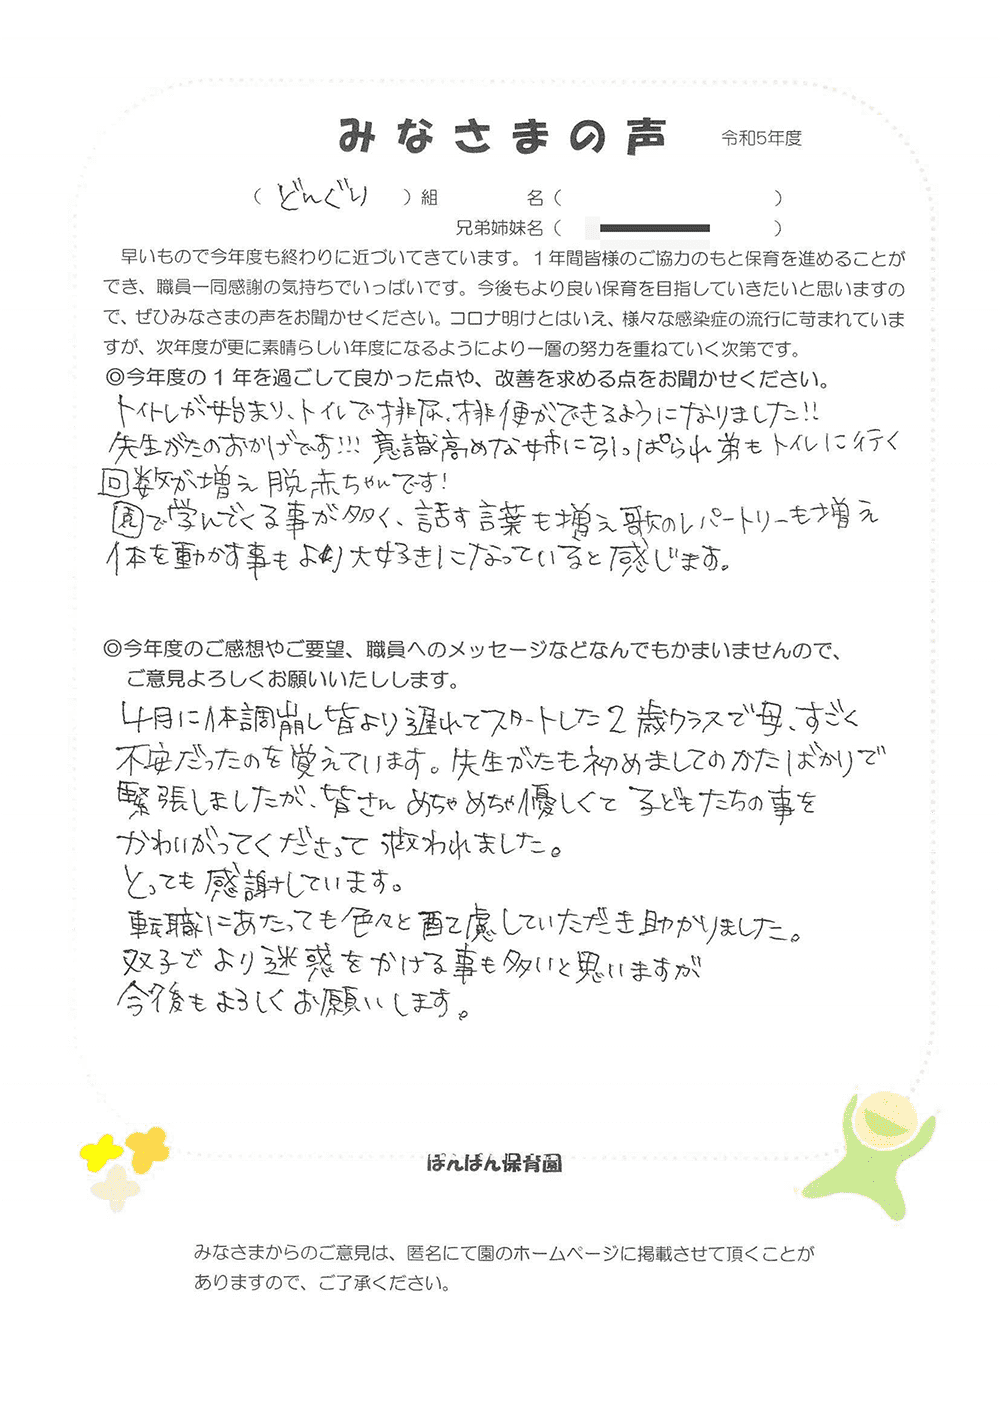 みなさまの声 令和5年度
( どんぐり )組 名( )
兄弟姉妹名( )
早いもので今年度も終わりに近づいてきています。1年間皆様のご協力のもと保育を進めることが
でき、職員一同感謝の気持ちでいっぱいです。今後もより良い保育を目指していきたいと思いますの
で、ぜひみなさまの声をお聞かせください。コロナ明けとはいえ、様々な感染症の流行に苛まれていま
すが、次年度が更に素晴らしい年度になるようにより一層の努力を重ねていく次第です。
◎今年度の1年を過ごして良かった点や、改善を求める点をお聞かせください。
トイトレが始まり、トイレで排尿、排便ができるようになりました!!
先生がたのおかげです!!!意識高めな姉に引っぱられ弟もトイレに行く
回数が増え脱赤ちゃんです!
園で学んでくる事が多く、話す言葉も増え歌のレパートリーも増え
体を動かす事もより大好きになっていると感じます。
◎今年度のご感想やご要望、職員へのメッセージなどなんでもかまいませんので、
ご意見よろしくお願いいたしします。
4月に体調崩し皆より遅れてスタートした2歳クラスで母、すごく
不安だったのを覚えています。先生がたも初めましてのかたばかりで
緊張しましたが、皆さんめちゃめちゃ優しくて子どもたちの事を
かわいがってくださって救われました。
とっても感謝しています。
転職にあたっても色々と配慮していただき助かりました。
双子でより迷惑をかける事も多いと思いますが
今後もよろしくお願いします。
ぽんぽん保育園
みなさまからのご意見は、匿名にて園のホームページに掲載させて頂くことが
ありますので、ご了承ください。